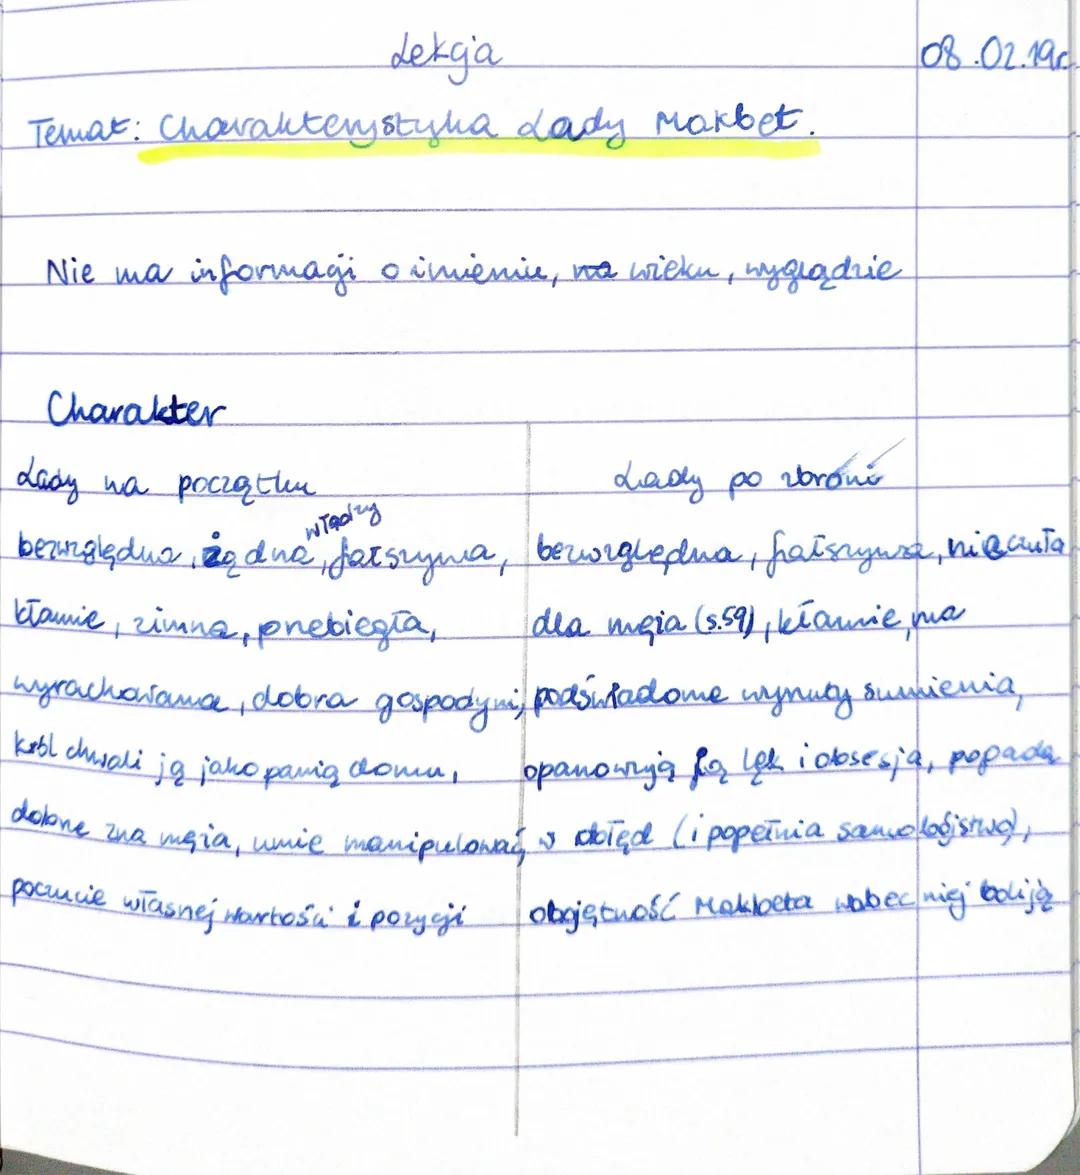 Lekcja
08.02.19r.
Temat: Charakterystyka Lady Makbet.
Nie ma informacji o imieniu, wieku, wyglądzie
Charakter
Lady na początku
bezwzględna, żądna władzy, fałszywa,
kłamie, zimna, przebiegła,
wyrachowana, dobra gospodyni,
król chwali ją jako panią domu,
dobrze zna męża, umie manipulować,
poczucie własnej wartości i pozycji
Lady po zbrodni
bezwzględna, fałszywa, nieczuła
dla męża (s.59), kłamie, ma
podświadome wyrzuty sumienia,
opanowują ją lęk i obsesja, popada
w obłęd (i popełnia samobójstwo),
obojętność Makbeta wobec niej boli ją